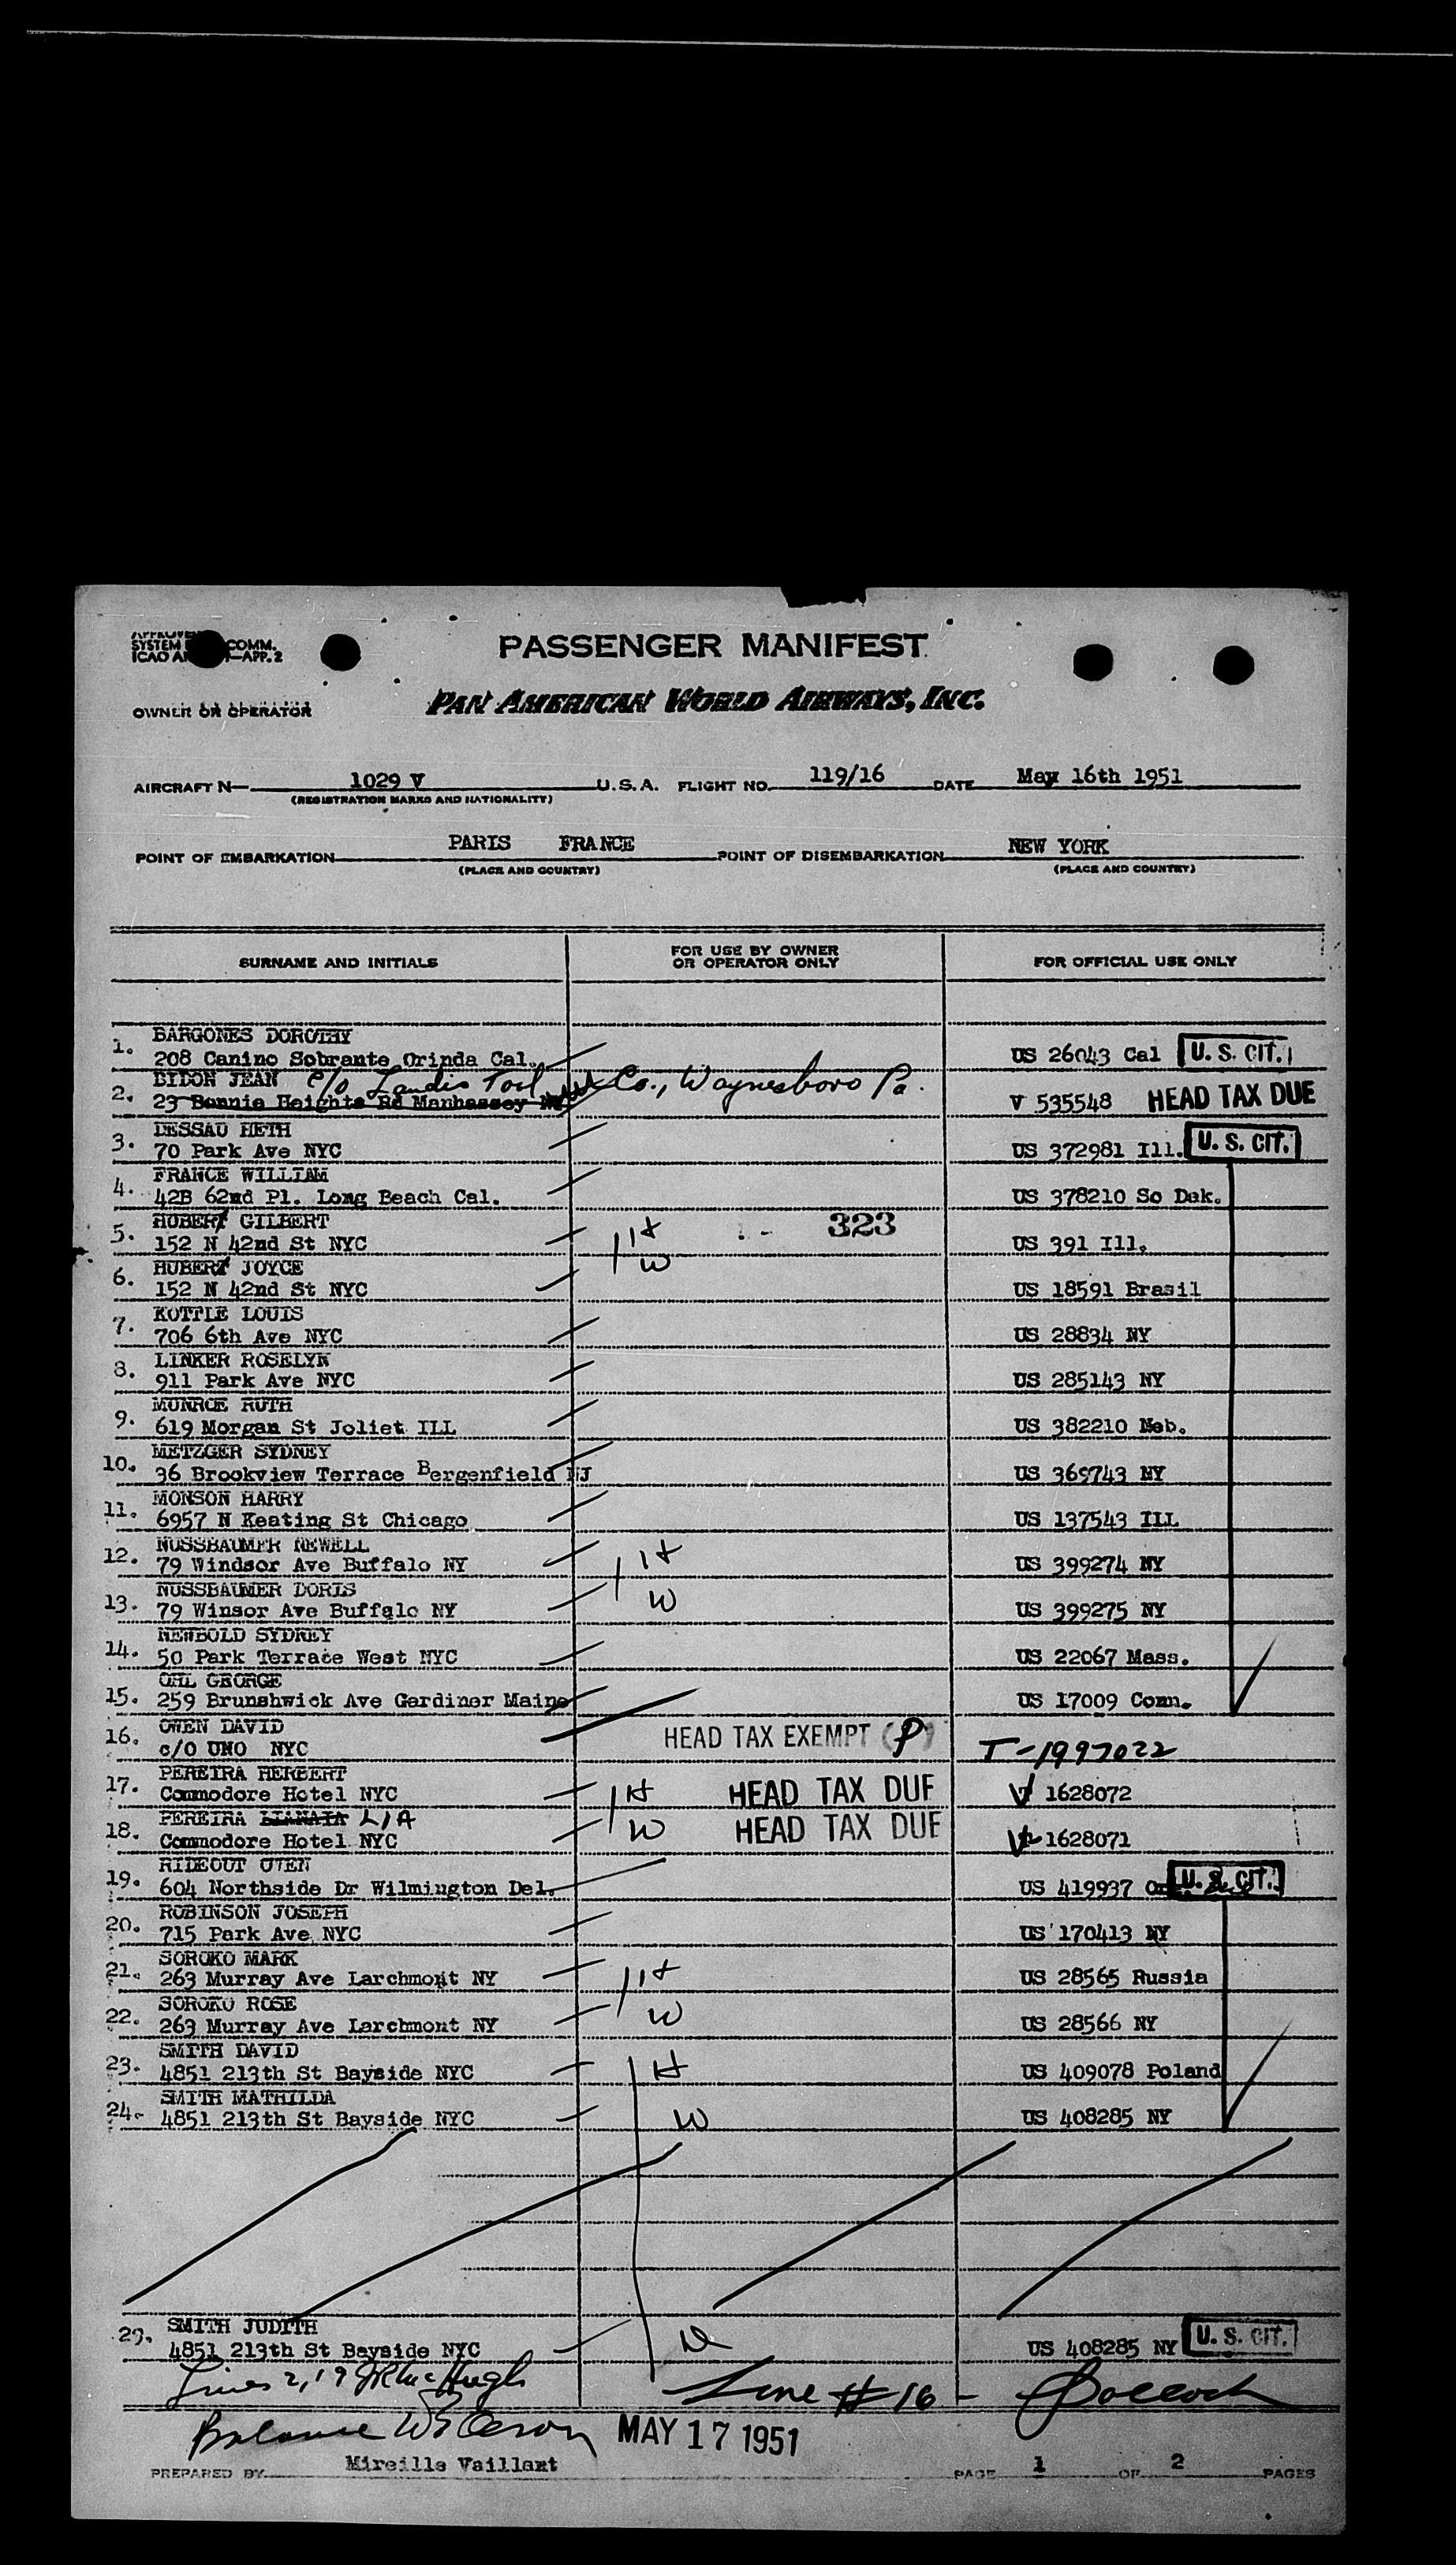 SYSTEM COMM.
ICAO —APP. 2
PASSENGER MANIFEST
OWNER OR OPERATOR
PAN AMERICAN WORLD AIRWAYS, INC.
AIRCRAFT N— 1029 V U.S.A. FLIGHT NO. 119/16 DATE May 16th 1951
(REGISTRATION MARKS AND NATIONALITY)
POINT OF EMBARKATION PARIS FRANCE POINT OF DISEMBARKATION NEW YORK
(PLACE AND COUNTRY) (PLACE AND COUNTRY)
SURNAME AND INITIALS FOR USE BY OWNER OR OPERATOR ONLY FOR OFFICIAL USE ONLY
BARGONES DOROTHY
1. 208 Canino Sobrante Orinda Cal. US 26043 Cal U. S. CIT.
BIDON JEAN c/o Landis Tool Co., Waynesboro Pa.
2. 23 Bonnie Heights Rd Manhassey V 535548 HEAD TAX DUE
DESSAU HETH
3. 70 Park Ave NYC US 372981 Ill. U. S. CIT.
FRANCE WILLIAM
4. 42B 62nd Pl. Long Beach Cal. US 378210 So Dak.
HUBERT GILBERT
5. 152 N 42nd St NYC 1 H 323 US 391 Ill.
HUBERT JOYCE W
6. 152 N 42nd St NYC US 18591 Brasil
KOTTLE LOUIS
7. 706 6th Ave NYC US 28834 NY
LINKER ROSELYN
8. 911 Park Ave NYC US 285143 NY
MUNROE RUTH
9. 619 Morgan St Joliet ILL US 382210 Neb.
METZGER SYDNEY
10. 36 Brookview Terrace Bergenfield NJ US 369743 NY
MONSON HARRY
11. 6957 N Keating St Chicago US 137543 ILL
NUSSBAUMER NEWELL
12. 79 Windsor Ave Buffalo NY H US 399274 NY
NUSSBAUMER DORIS
13. 79 Winsor Ave Buffalo NY W US 399275 NY
NEWBOLD SYDNEY
14. 50 Park Terrace West NYC US 22067 Mass.
OHL GEORGE
15. 259 Brunshwick Ave Gardiner Maine US 17009 Conn.
OWEN DAVID
16. c/o UNO NYC HEAD TAX EXEMPT (P) T-1997022
PEREIRA HERBERT
17. Commodore Hotel NYC H HEAD TAX DUE V 1628072
PEREIRA LIA
18. Commodore Hotel NYC W HEAD TAX DUE V 1628071
RIDEOUT OTEN
19. 604 Northside Dr Wilmington Del. US 419937 U. S. CIT.
ROBINSON JOSEPH
20. 715 Park Ave NYC US 170413 NY
SOROKO MARK
21. 263 Murray Ave Larchmont NY H US 28565 Russia
SOROKO ROSE
22. 263 Murray Ave Larchmont NY W US 28566 NY
SMITH DAVID
23. 4851 213th St Bayside NYC H US 409078 Poland
SMITH MATHILDA
24. 4851 213th St Bayside NYC W US 408285 NY
SMITH JUDITH
29. 4851 213th St Bayside NYC D US 408285 NY U. S. CIT.
Lines 2, 19 McHugh Line # 16 -
Balance MAY 17 1951
PREPARED BY Mireille Vaillant PAGE 1 OF 2 PAGES